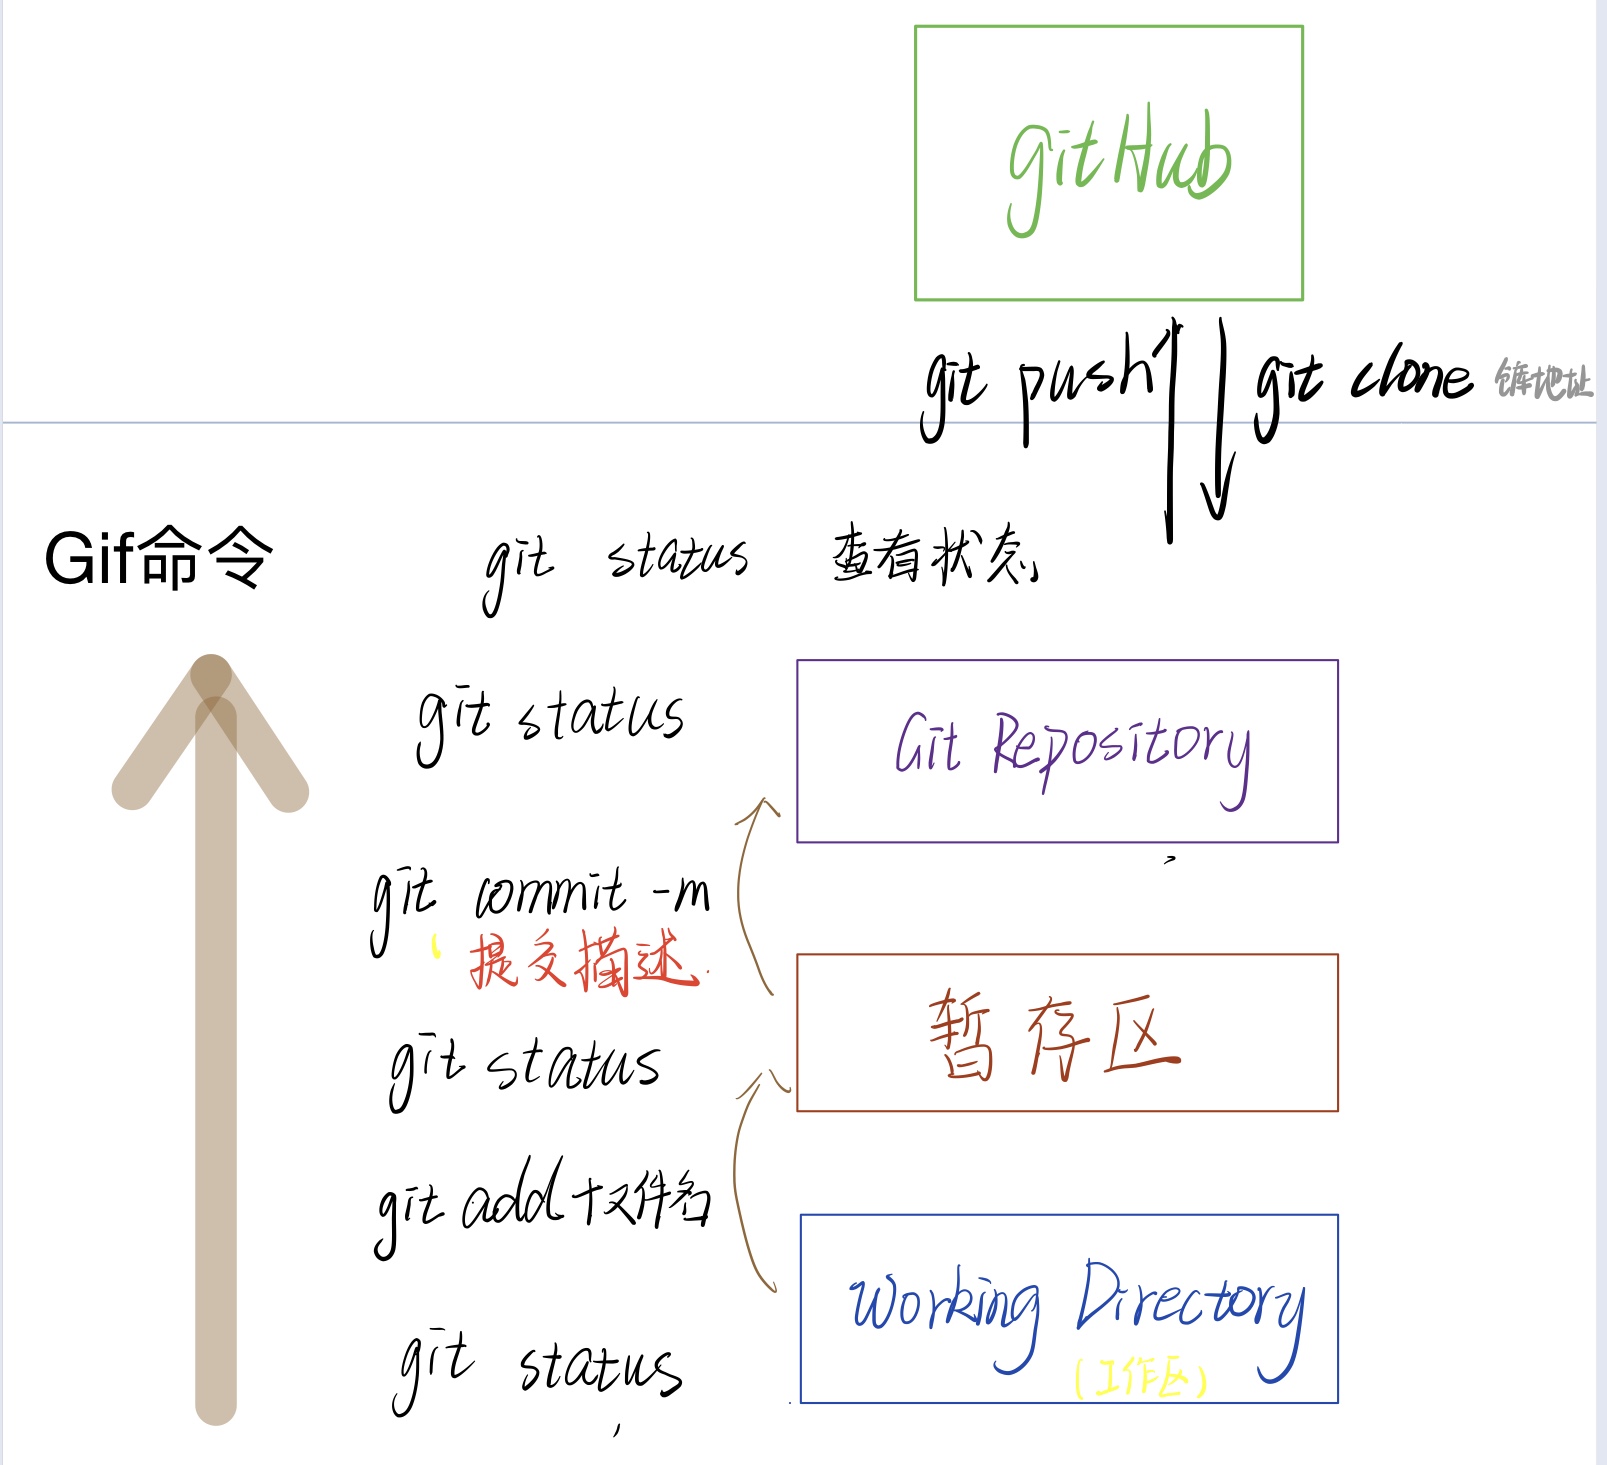 gitHub
git push git clone 仓库地址
Gif命令
git status 查看状态
git status
Git Repository
git commit -m
提交描述.
暂存区
git status
git add+文件名
Working Directory
(工作区)
git status